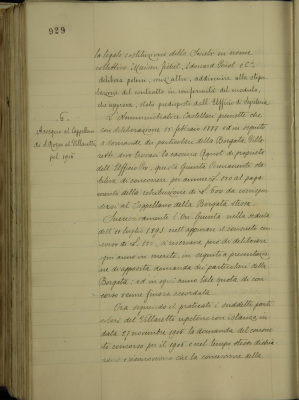 929
la legale costituzione della Società in nome
collettivo
delibera potersi, senz'altro, addivenire alla stipu-
lazione del contratto in conformità del modulo,
che approva, stato predisposto dall'Ufficio di Segreteria.
6.
Assegno al Cappellano
di S. Rocco al Villaretto
pel 1906
L'Amministratore Castellani premette che
con deliberazione 15 febbraio 1888 ed in seguito
a domanda dei particolari della Borgata Villa-
retto
dell'Ufficio, questa Giunta Municipale sta-
biliva di concorrere per annue L. 150 al paga-
mento della retribuzione di L. 600 da corrispon-
dersi al Cappellano della Borgata stessa.
Successivamente l'On. Giunta nella seduta
dell' luglio 1893 nell'approvare il suddetto con-
corso di L. 150, si riservava però di deliberare
ogni anno in merito, in seguito a presentazio-
ne di apposita domanda dei particolari della
Borgata, ed in ogni anno tale quota di con-
corso venne finora accordata.
Ora seguendo il praticato i suddetti parti-
colari del Villaretto ripetono con istanza in
data 27 novembre 1906 la domanda del consue-
to concorso per il 1906 e nel tempo stesso dichia-
rano che la conservazione della